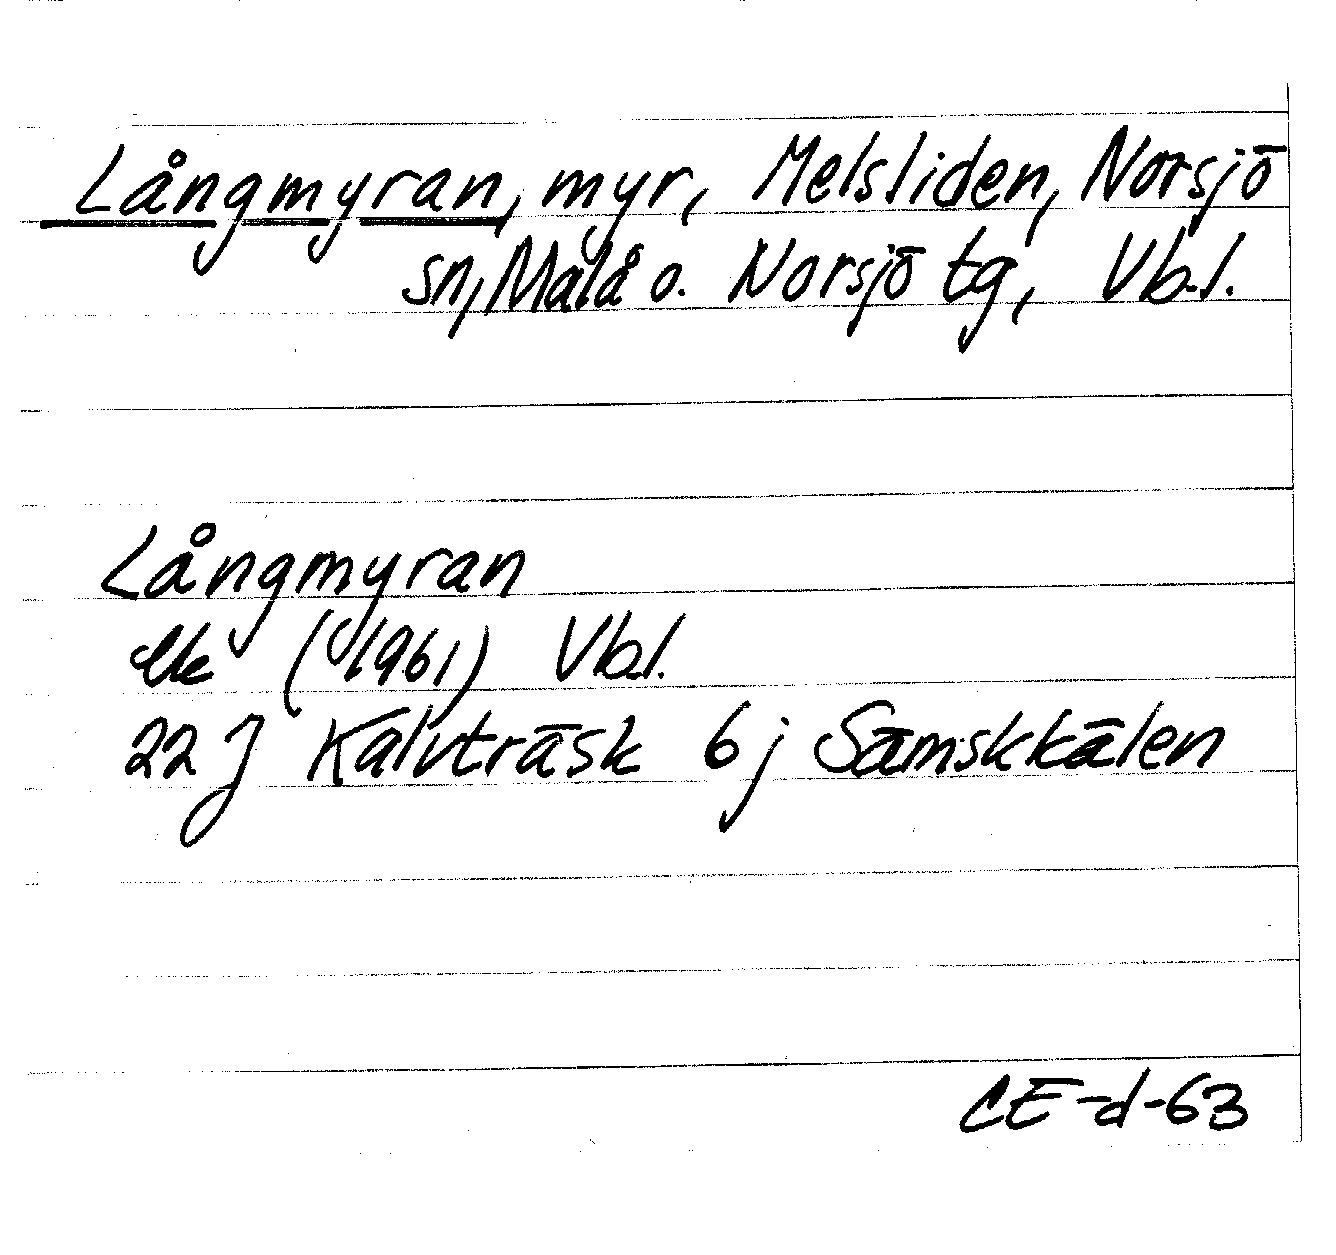 Långmyran, myr, Melsliden, Norsjö
sn, Malå o. Norsjö tg, Vb.l.
Långmyran
ek (1961) Vb.l.
22 J Kalvträsk 6 j Sämskkälen
CE-d-63